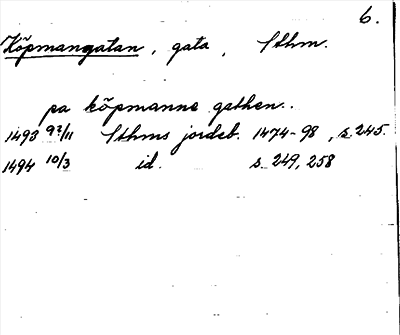 6.
Köpmangatan, gata, Sthm.
pa köpmanne gathen..
1493 /11 Sthms jordeb. 1474-98, s. 245.
1494 10/3 id. s. 249, 258